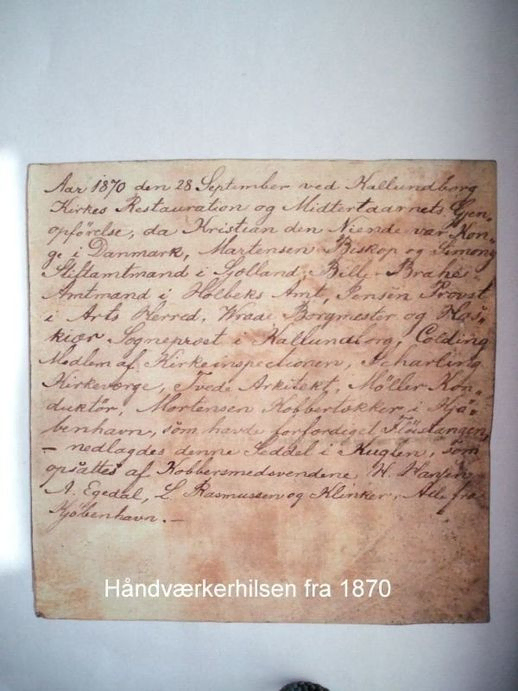 Aar 1870 den 28 September ved Kallundborg
Kirkes Restauration og Midtertaarnets Gjen-
opförelse, da Kristian den Niende var Kon-
ge i Danmark, Martensen Biskop og Simony
Stiftamtmand i Sjolland, Bille Brahe
Amtmand i Holbeks Amt, Jensen Provst
i Arts Herred, Wrade Borgmester og
kiær Sogneprost i Kallundborg, Colding
Medlem af Kirkeinspectionen, Scharling
Kirkeværge, Tvede Arkitekt, Møller Kon-
duktör, Mortensen Kobbertækker i Kjö-
benhavn, som havde forfordiget Flöistangen,
– nedlagdes denne Seddel i Kuglen, som
opsattes af Kobbersmedsvendene H. Hansen
A. Egedal, L. Rasmussen og Klinker, Alle fra
Kjöbenhavn. –
Håndværkerhilsen fra 1870